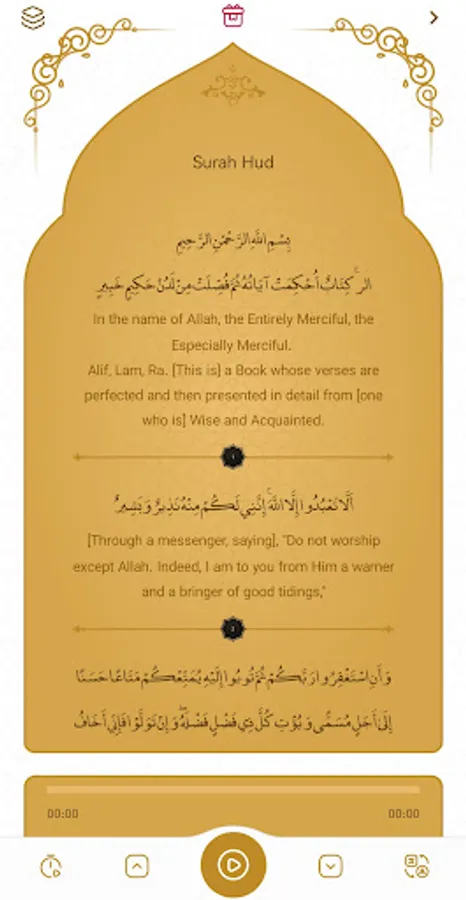 Surah Hud
بِسْمِ اللَّهِ الرَّحْمَٰنِ الرَّحِيمِ
الر ۚ كِتَابٌ أُحْكِمَتْ آيَاتُهُ ثُمَّ فُصِّلَتْ مِنْ لَدُنْ حَكِيمٍ خَبِيرٍ
In the name of Allah, the Entirely Merciful, the
Especially Merciful.
Alif, Lam, Ra. [This is] a Book whose verses are
perfected and then presented in detail from [one
who is] Wise and Acquainted.
1
أَلَّا تَعْبُدُوا إِلَّا اللَّهَ ۚ إِنَّنِي لَكُمْ مِنْهُ نَذِيرٌ وَبَشِيرٌ
[Through a messenger, saying], "Do not worship
except Allah. Indeed, I am to you from Him a warner
and a bringer of good tidings,"
2
وَأَنِ اسْتَغْفِرُوا رَبَّكُمْ ثُمَّ تُوبُوا إِلَيْهِ يُمَتِّعْكُمْ مَتَاعًا حَسَنًا
إِلَىٰ أَجَلٍ مُسَمًّى وَيُؤْتِ كُلَّ ذِي فَضْلٍ فَضْلَهُ ۖ وَإِنْ تَوَلَّوْا فَإِنِّي أَخَافُ
00:00 00:00